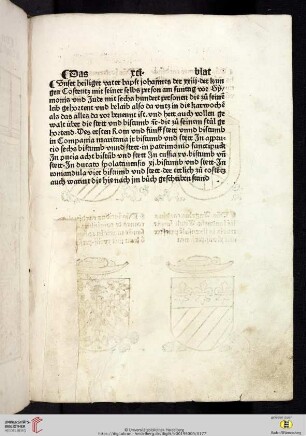 Das xci. blat
Unser heiliger vater bapst johannes der xxiij. der kam
gen Costentz mit seiner selbs person am suntag vor Sy-
monis vnd Jude mit sechs hundert personen die zů seinē
leib gehortent vnd belaib also da vntz in die karwochē
als das alles da vor benemt ist. vnd hett auch vollen ge
walt über die stett vnd bistumb ꝛc. die zů seinem stůl ge
hortend. Des ersten Rom vnd fünff stett vnnd bistumb
in Compania maritania ix bistumb vnd stett In
sechs bistumb vnnd stett in patrimonio
In acht bistūb vnd stett In tuscia xv. bistumb vñ
stett In ducato spolatinensis xi. bistumb vnd stett In
romandula vier bistumb vnd stett der etlich zů costētz
auch warent die hie nach im bůch geschriben stand
UNIVERSITÄTS-
BIBLIOTHEK
HEIDELBERG
© Universitätsbibliothek Heidelberg
Baden-Württemberg